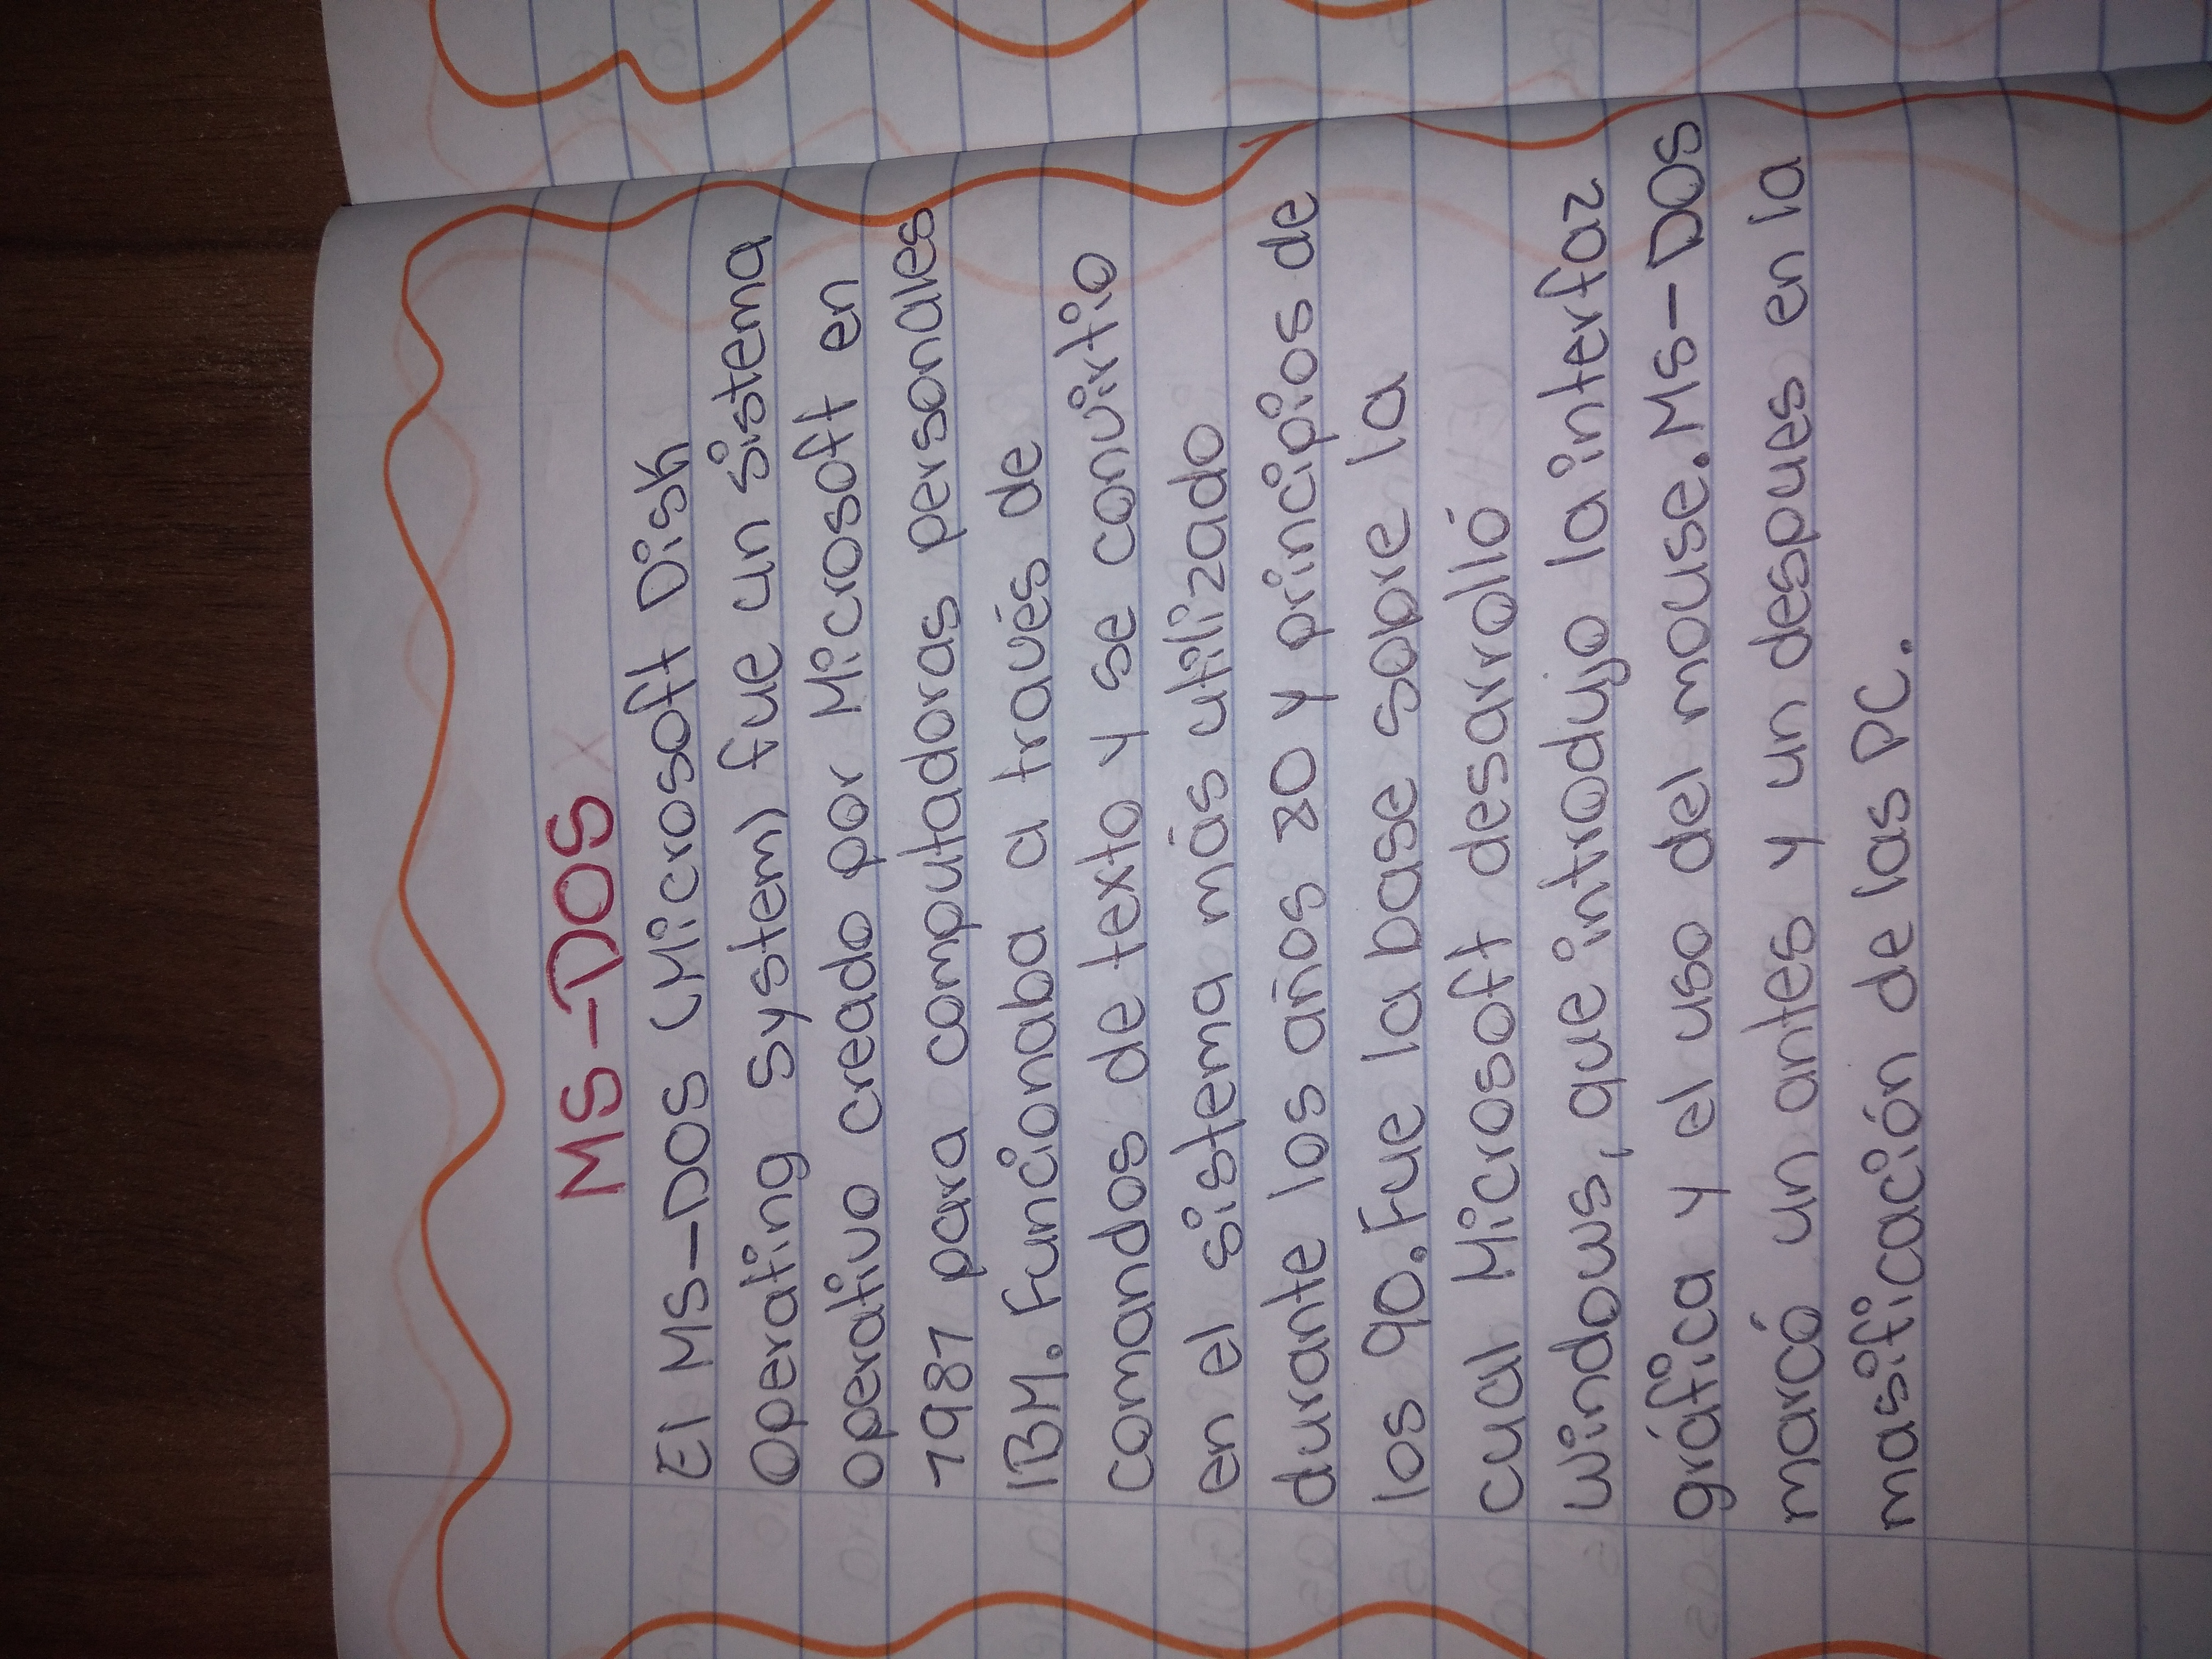 MS-DOS
El MS-DOS (Microsoft Disk
Operating System) fue un sistema
operativo creado por Microsoft en
1981 para computadoras personales
IBM. Funcionaba a través de
comandos de texto y se convirtio
en el sistema más utilizado
durante los años 80 y principios de
los 90. Fue la base sobre la
cual Microsoft desarrolló
windows, que introdujo la interfaz
gráfica y el uso del mouse. MS-DOS
marcó un antes y un despues en la
masificación de las PC.